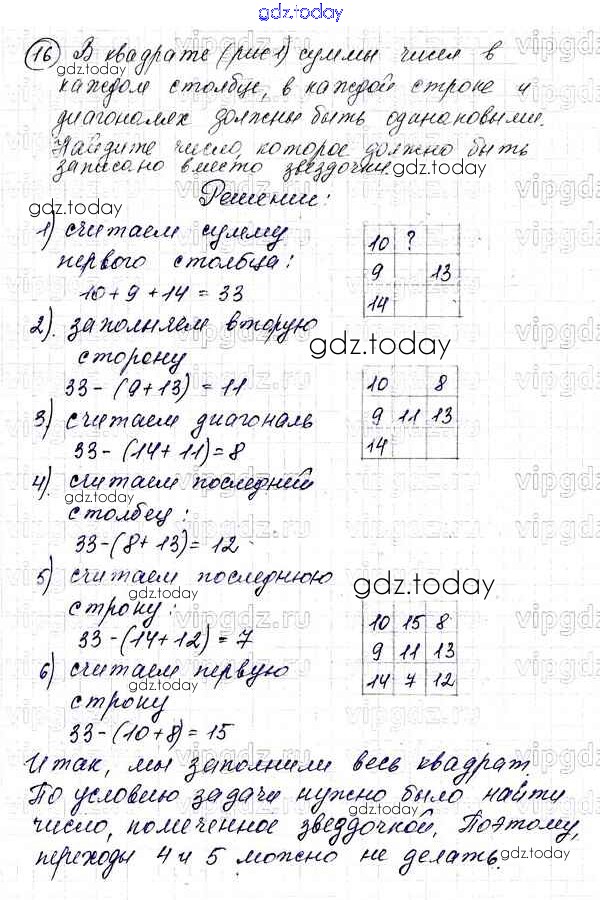 gdz.today
16 В квадрате (рис 1) суммы чисел в
каждом столбце, в каждой строке и
диагоналях должны быть одинаковыми.
Найдите число, которое должно быть
записано вместо звездочки.
gdz.today
Решении:
1) считаем сумму
первого столбца:
10+9+14=33
10 ?
9 13
14
2). заполняем вторую
сторону
33-(9+13)=11
gdz.today
10 8
9 11 13
14
3) считаем диагональ
33-(14+11)=8
4). считаем последний
gdz.today
столбец:
33-(8+13)=12
5) считаем последнюю
строну:
33-(14+12)=7
gdz.today
10 15 8
9 11 13
14 7 12
6) считаем первую
gdz.today
строну
33-(10+8)=15
Итак, мы заполнили весь квадрат.
По условию задачи нужно было найти
число, помеченное звездочкой. Поэтому,
переходы 4 и 5 можно не делать.
gdz.today